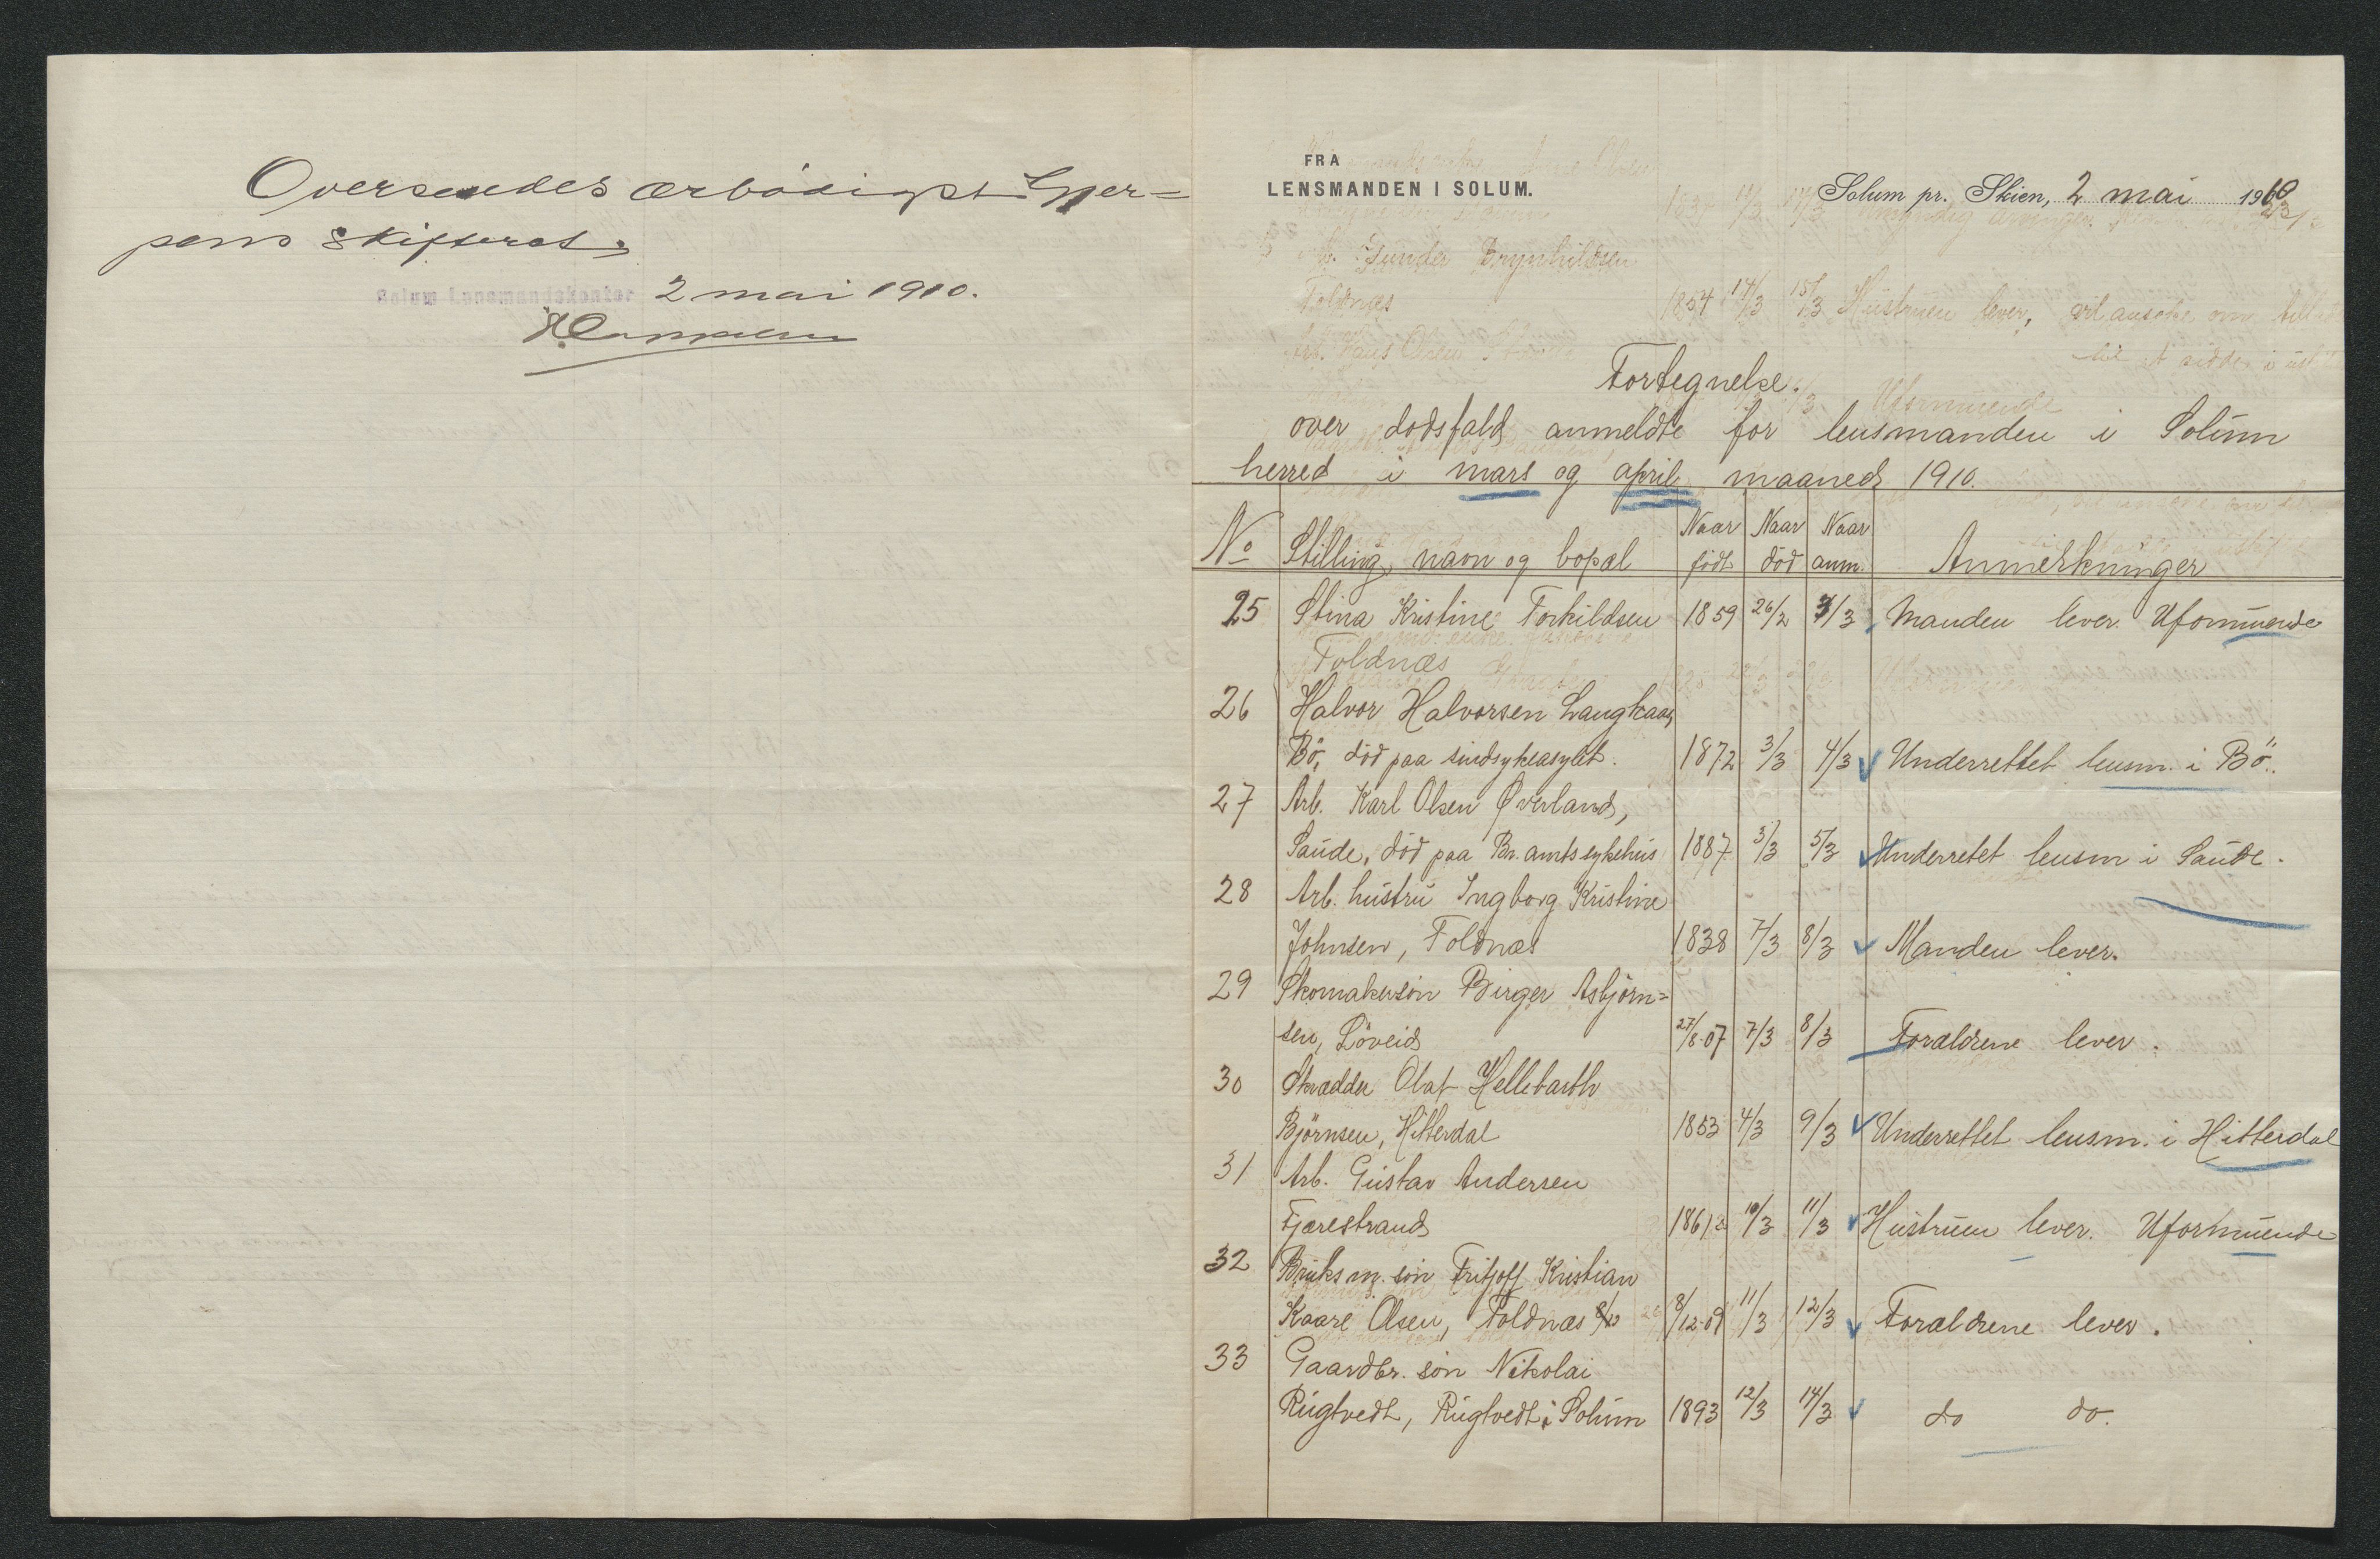 Oversendes ærbödigst Gjer=
pens skifteret
Solum Lensmandskontor 2 mai 1910.
FRA
LENSMANDEN I SOLUM.
Solum pr. Skien, 2 mai 1910
Fortegnelse.
over dödsfald anmeldte for lensmanden i Solum
herred i mars og april maaned 1910.
No Stilling, navn og bopæl Naar født Naar död Naar anm. Anmerkninger
25 Stina Kristine Torkildsen 1859 26/2 3/3 Manden lever. Uformuende
Foldnæs
26 Halvor Halvorsen Langkaas,
Bö, död paa sindsykeasylet. 1872 3/3 4/3 Underrettet lensm. i Bö.
27 Arb. Karl Olsen Øverland,
Saude, död paa Br. amts sykehus 1887 3/3 5/3 Underretet lensm i Saude.
28 Arb. hustru Ingborg Kristine
Johnsen, Foldnæs 1838 7/3 8/3 Manden lever.
29 Skomakersön Birger Asbjörn=
sen, Löveid 27/8-07 7/3 8/3 Forældrene lever.
30 Skrædder Olaf Hellebarth
Björnsen, Hitterdal 1853 4/3 9/3 Underrettet lensm. i Hitterdal
31 Arb. Gustav Andersen
Fjærestrand 1861 10/3 11/3 Hustruen lever. Uformuende
32 Bruks m. sön Fritjoff Kristian
Kaare Olsen, Foldnæs 8/12-09 11/3 12/3 Forældrene lever.
33 Gaardbr. sön Nikolai
Rugtvedt, Rugtvedt i Solum 1893 12/3 14/3 do do.